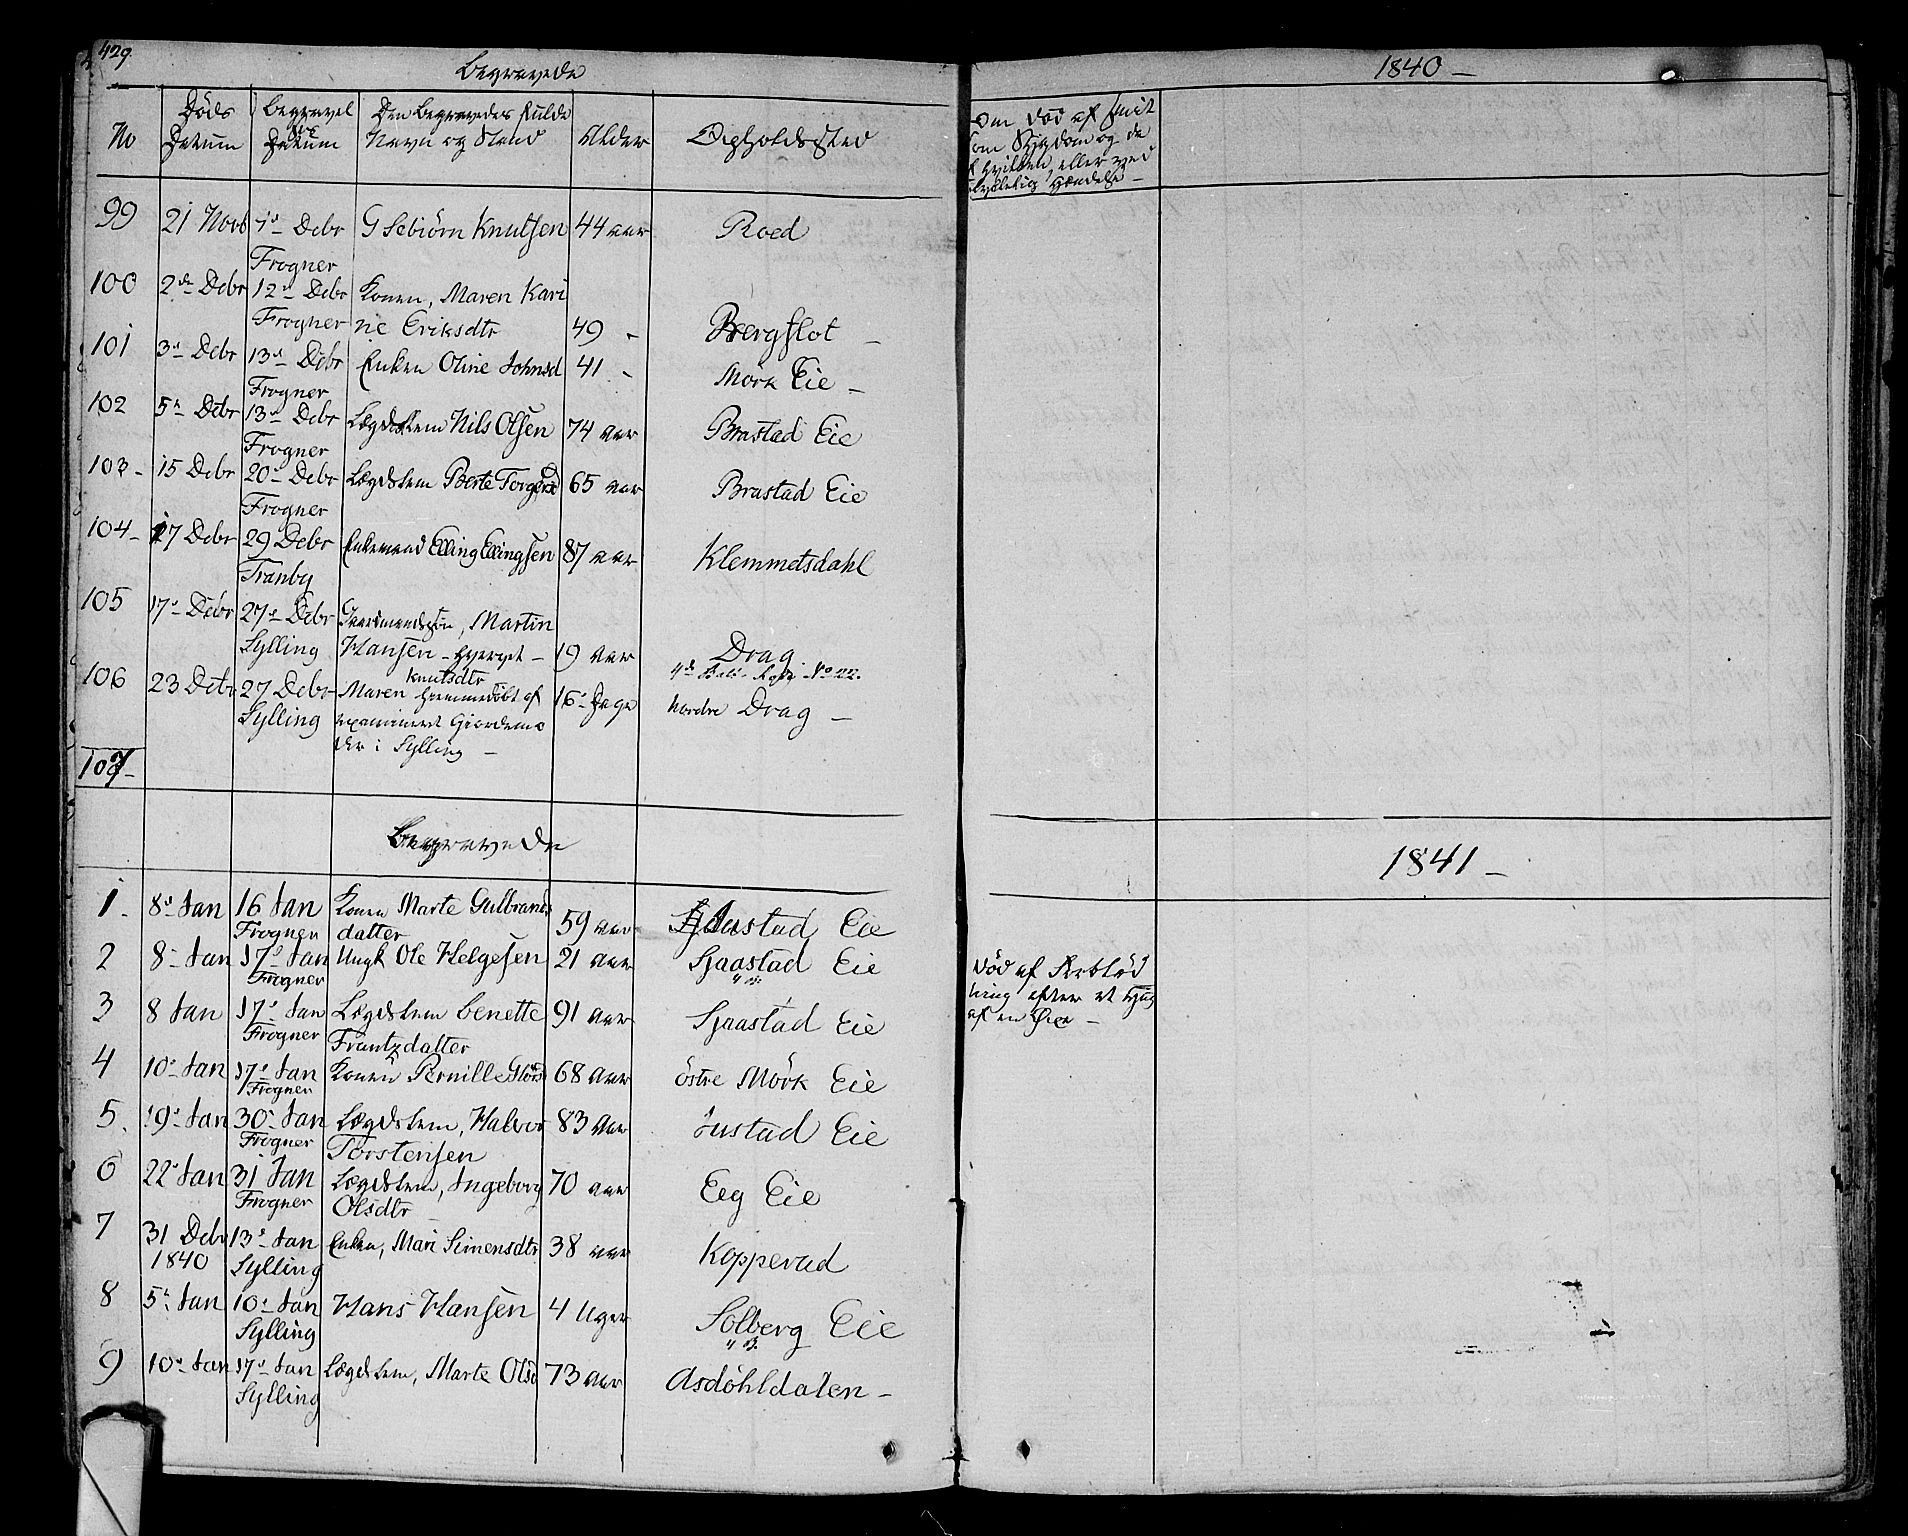 429.
Begravede
1840 –
No
Døds Datum
Begravelse Datum
Den Begravedes Fulde Navn og Stand
Alder
Opholdssted
Om død af
som Sygdom og da
af hvilken, eller ved
ulykkelig Hændelse –
99 21 Novb 1ste Debr Gulbiørn Knutsen 44 aar Roed
Frogner
100 2den Debr 12te Debr Konen, Maren Kari
Frogner ne Eriksdtr 49 – Bergflot –
101 3de Debr 13de Debr Enken Oline Johnsd 41 – Mørk Eie –
Frogner
102 5te Debr 13de Debr Lægdslem Nils Olsen 74 aar Brastad Eie
Frogner
103 – 15 Debr 20de Debr Lægdslem Berte Torgersd 65 aar Brastad Eie
Frogner
104 – 17 Debr 29 Debr Enkemand Elling Ellingsen 87 aar Klemmetsdahl
Tranby
105 17de Debr 27de Debr Gaardmandssøn, Martin
Sylling Hansen – Hvervet – 19 aar Drag
4de No 22.
106 23 Debr 27 Debr Maren Knutsdtr Hjemmedøbt af 16 Dage Nordre Drag –
Sylling examineret Giordemo
der i Sylling –
107 –
Begravede
1841 –
1. 8de Jan 16 Jan Konen Marte Gulbrands 59 aar Eie
Frogner datter
2 8 – Jan 17de Jan Ungk Ole Helgesen 21 aar Sjaastad Eie
Frogner
Død af Forblød
ning efter et Hug
af en Øxe –
3 8 Jan 17de Jan Lægdslem Benette 91 aar Sjaastad Eie
Frogner Frantzdatter
4 10de Jan 17de Jan Konen Pernille 68 aar østre Mørk Eie
Frogner
5. 19de Jan 30te Jan Lægdslem, Halvor 83 aar Øustad Eie
Frogner Torstensen
6 22de Jan 31 Jan Lægdslem, Ingeborg 70 aar Eeg Eie
Frogner Olsdtr
7 31 Debr 13de Jan Enken, Mari Simensdtr 38 aar Kopperud
1840 Sylling
8 5te Jan 10de Jan Hans Hansen 4 Uger Solberg Eie
Sylling
9 10de Jan 17de Jan Lægdslem, Marte Olsd 73 aar Asdøhldalen –
Sylling